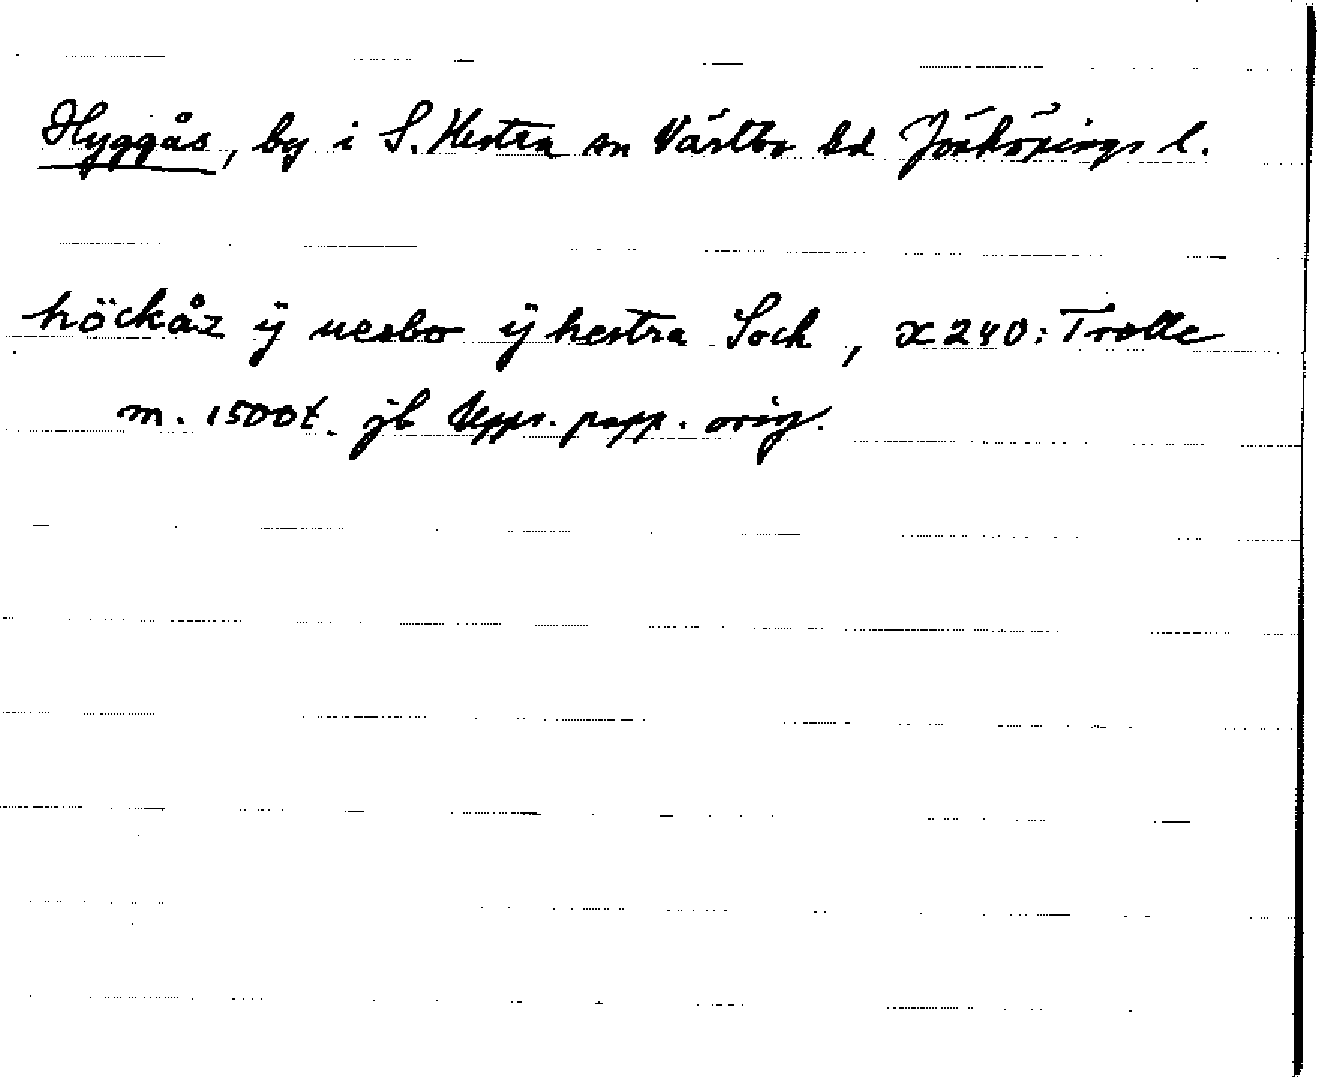 Hyggås, by i S. Hestra sn Västbo hd Jönköpings l.
höckåz ÿ uesbo ÿ hestra Soch, x240: Trolle
m. 1500t. jb Upps. papp. orig.